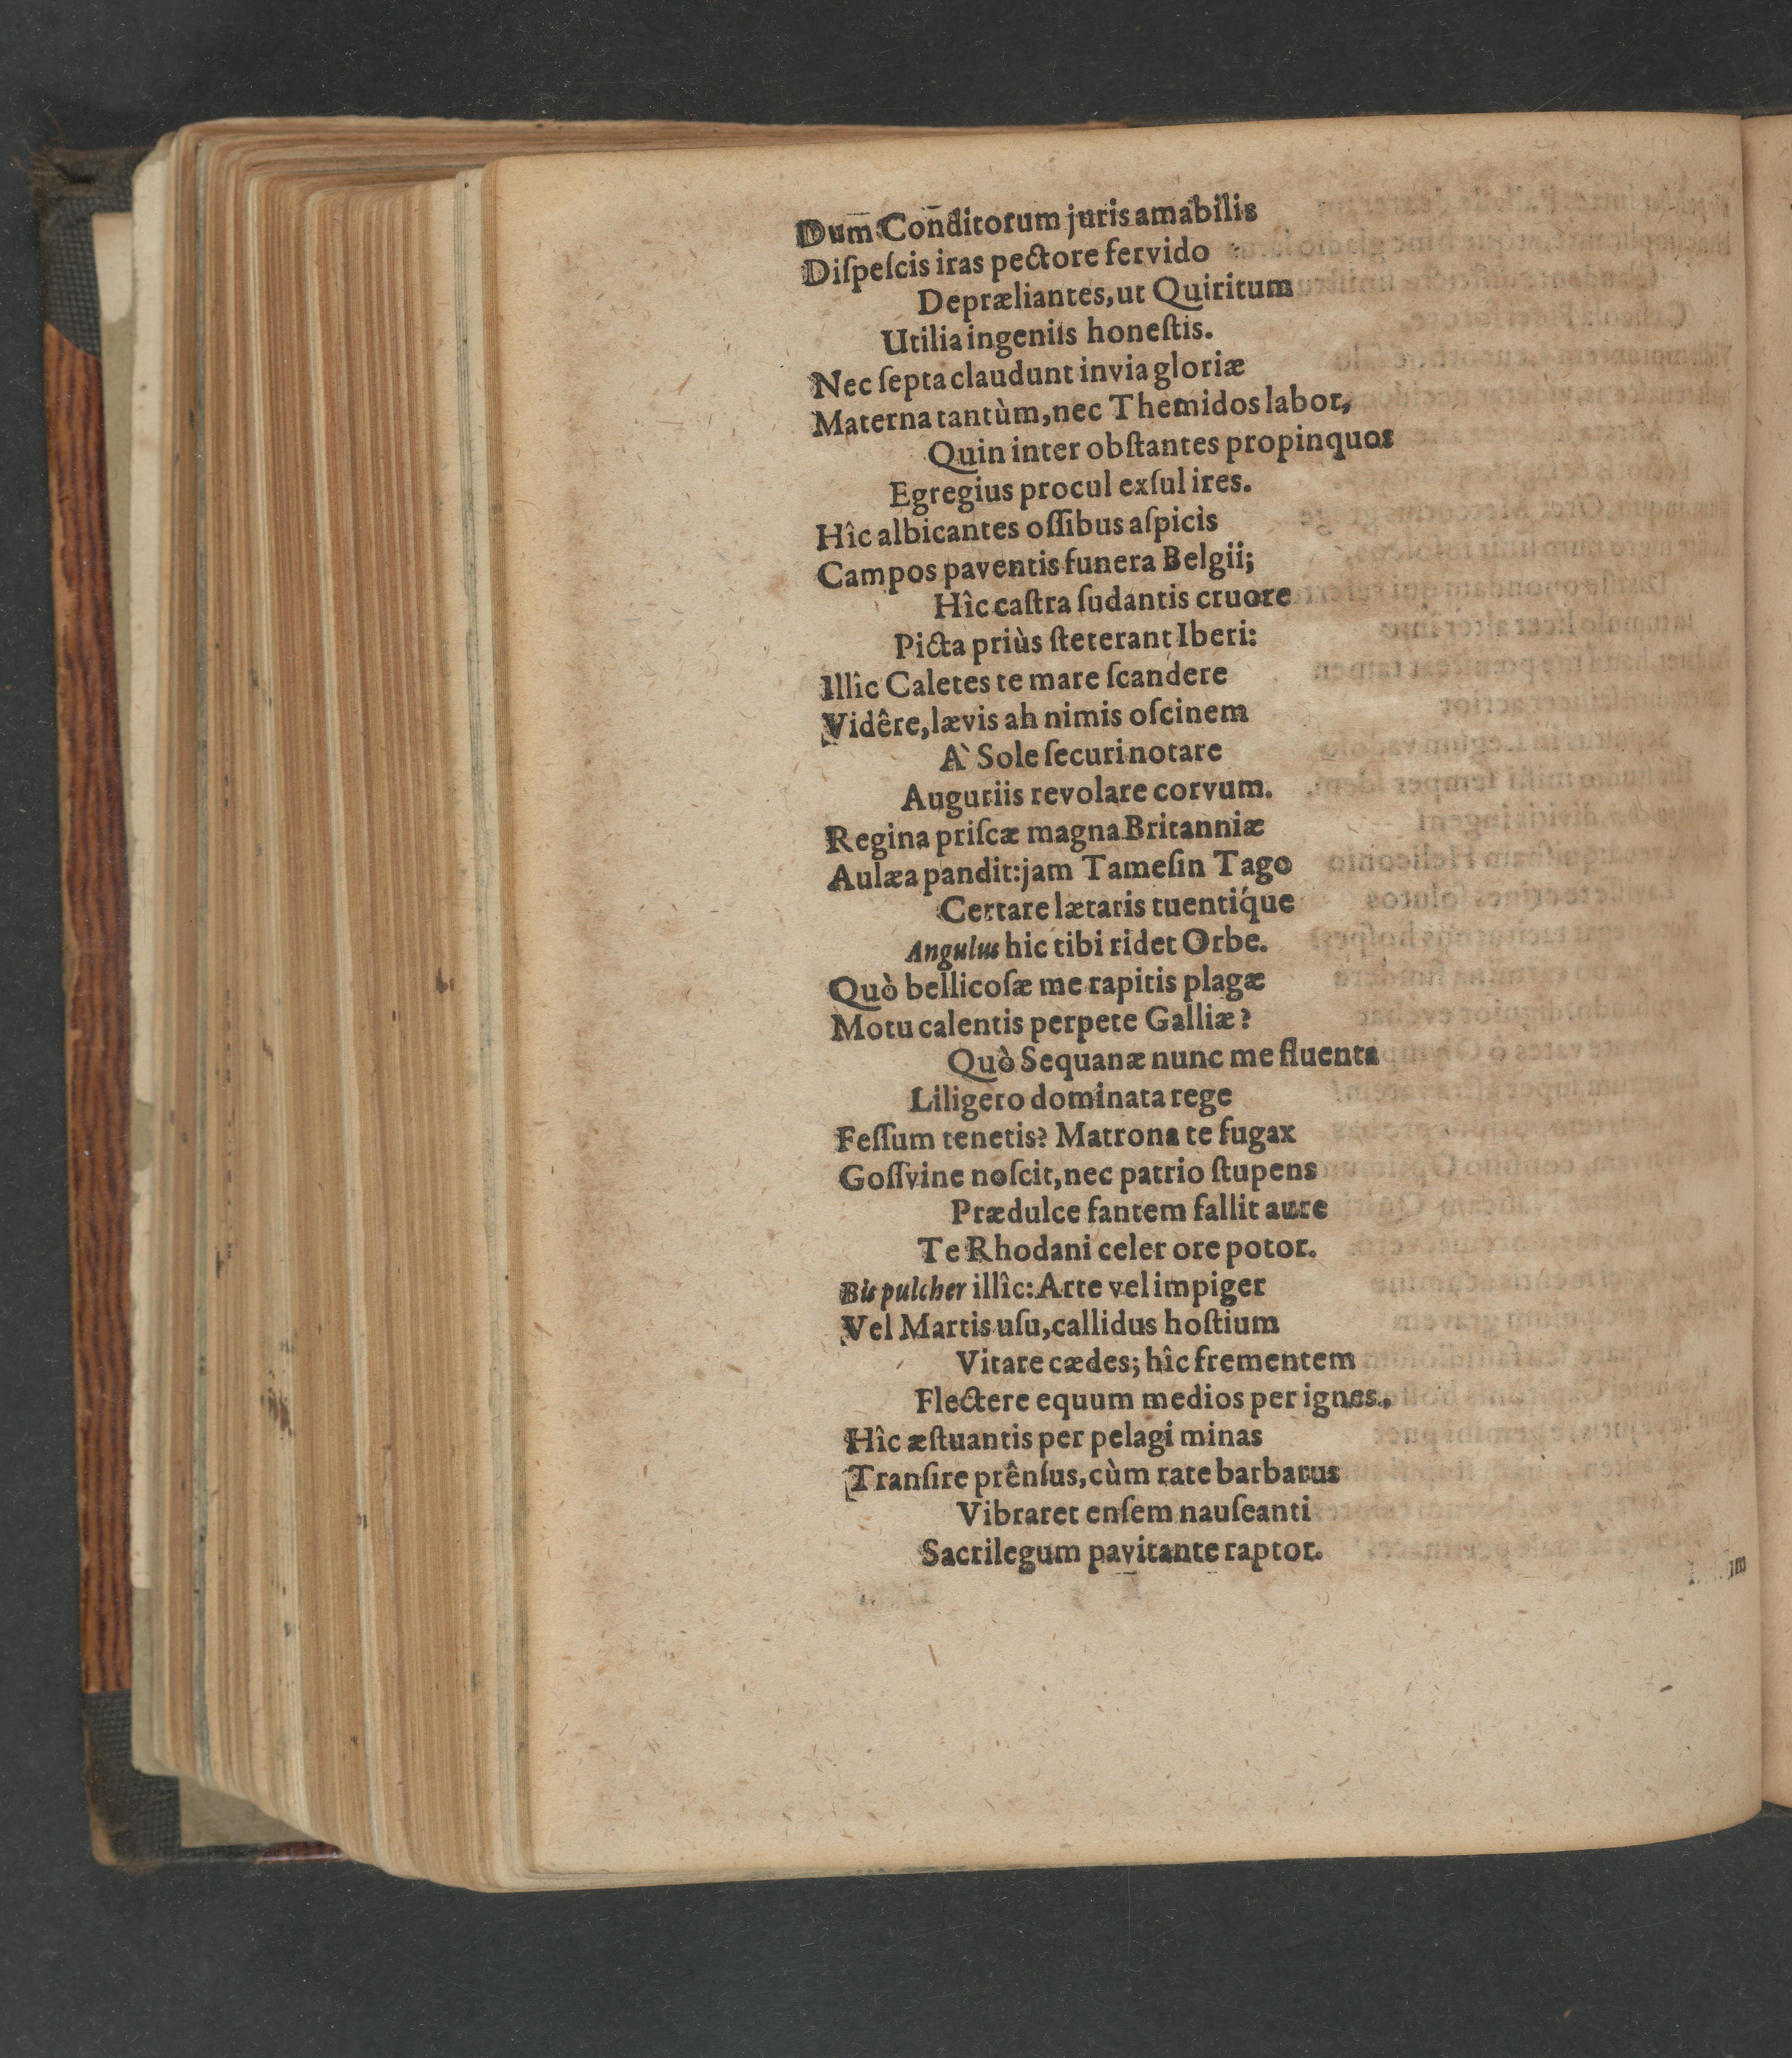 Dum Conditorum juris amabilis
Diſpeſcis iras pectore fervido
Depræliantes, ut Quiritum
Utilia ingeniis honeſtis.
Nec ſepta claudunt invia gloriæ
Materna tantùm, nec Themidos labor,
Quin inter obſtantes propinquos
Egregius procul exſul ires.
Hîc albicantes oſſibus aſpicis
Campos paventis funera Belgii;
Hîc caſtra ſudantis cruore
Picta priùs ſteterant Iberi:
Illîc Caletes te mare ſcandere
Vidêre, lævis ah nimis oſcinem
A` Sole ſecuri notare
Auguriis revolare corvum.
Regina priſcæ magna Britanniæ
Aulæa pandit: jam Tameſin Tago
Certare lætaris tuentiq́ue
Angulus hic tibi ridet Orbe.
Quò bellicoſæ me rapitis plagæ
Motu calentis perpete Galliæ?
Quò Sequanæ nunc me fluenta
Liligero dominata rege
Feſſum tenetis? Matrona te fugax
Goſſvine noſcit, nec patrio ſtupens
Prædulce fantem fallit aure
Te Rhodani celer ore potor.
Bis pulcher illîc: Arte vel impiger
Vel Martis uſu, callidus hoſtium
Vitare cædes; hîc frementem
Flectere equum medios per ignes,
Hîc æſtuantis per pelagi minas
Tranſire prênſus, cùm rate barbarus
Vibraret enſem nauſeanti
Sacrilegum pavitante raptor.